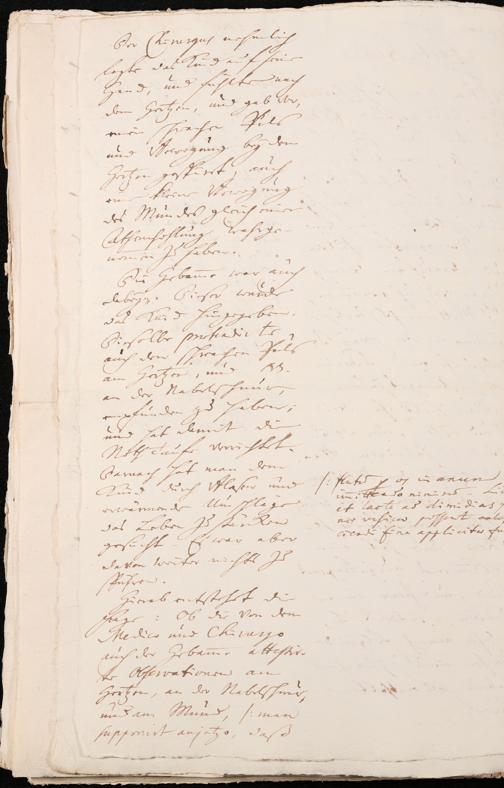 Der Chirurgus nehmlich
legte das Kind auf seine
Hand, und fühlte nach
dem Hertzen, und gab vor,
einen schwachen Puls
und Bewegung bey dem
Hertzen gespüret, auch
eine kleine Bewegung
des Mundes gleich einer
Athemhohlung wahrge-
nomen zu haben.
Die Hebamme war auch
dabey. Dieser wurde
das Kind hingegeben.
Dieselbe
auch den schwachen Puls
am Hertzen, und
an der Nabelschnur,
empfunden zu haben;
und hat damit die
Nothtaufe verrichtet.
Darnach hat man dem
Kind durch Blasen und
erwärmende Umschläge
das Leben zu
gesucht. Es war aber
davon weiter nichts zu
spühren.
Hierab entstehet die
Frage: Ob die von dem
Medico und Chirurgo
auch der Hebamme attestir-
te Observationen am
Hertzen, an der Nabelschnur,
und am Mund, /: man
supponirt anjetzo, daß
/: in anum

et lacte ad dimidias